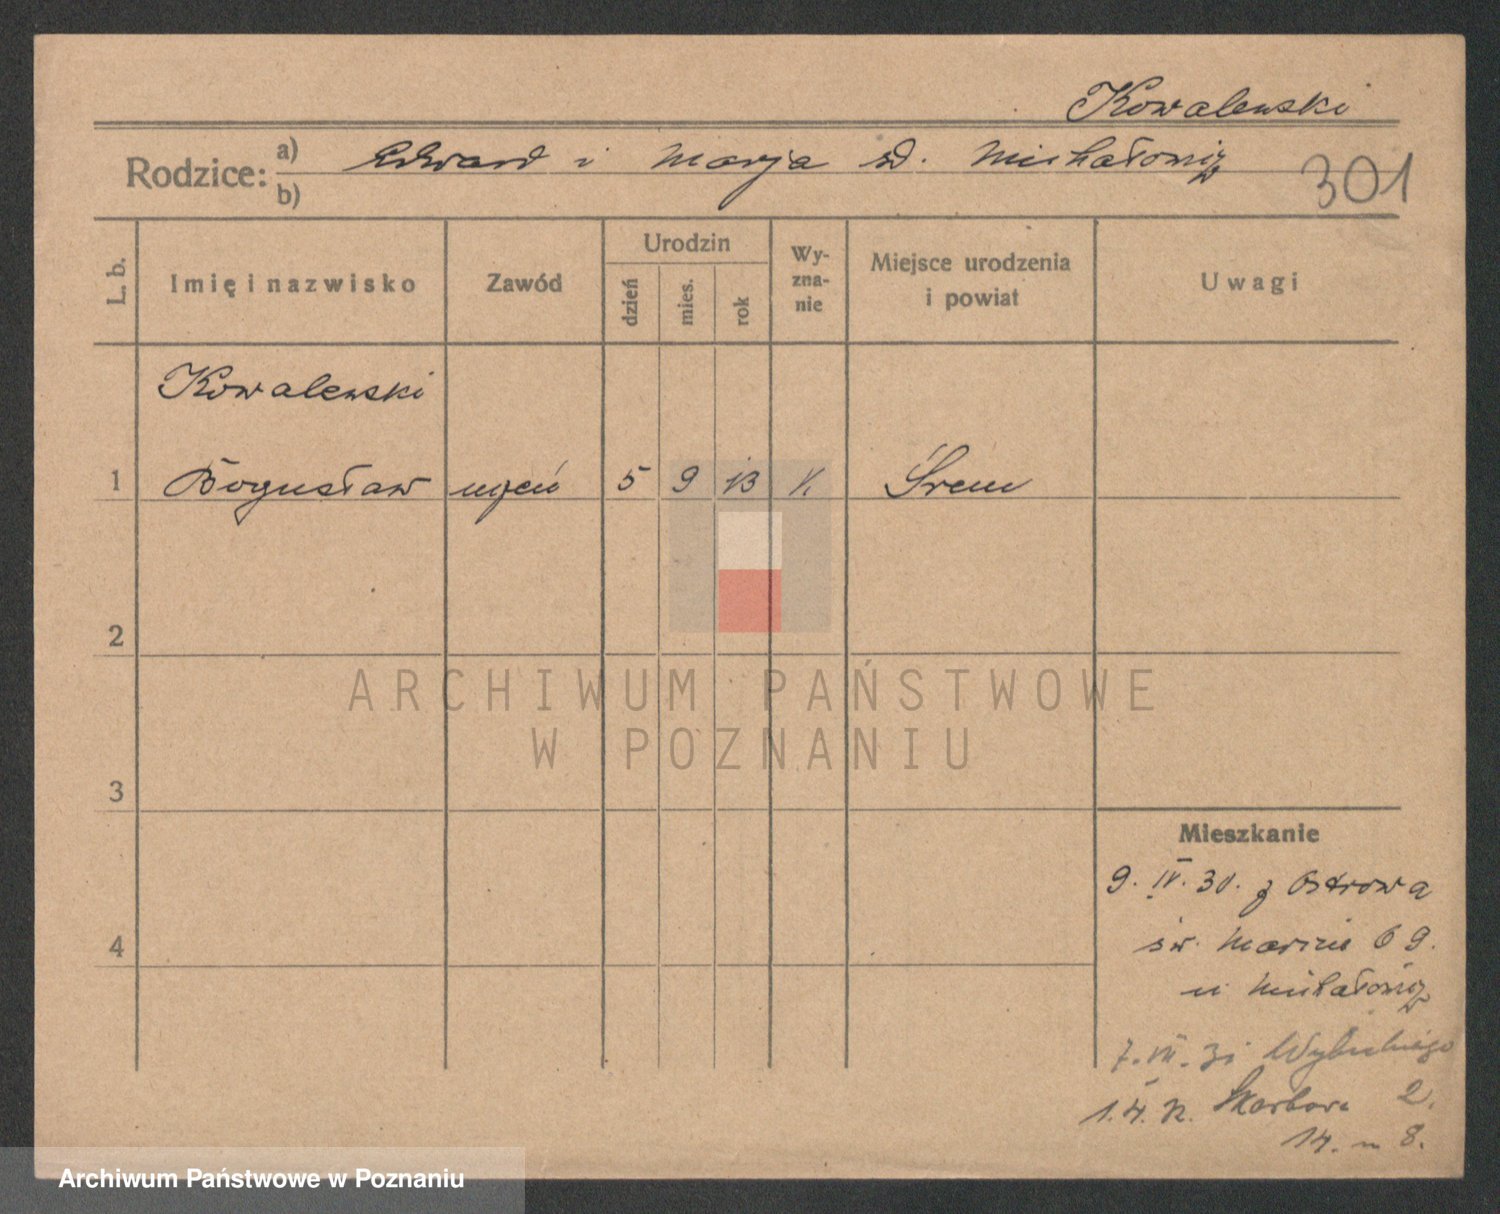 Kowalewski
Rodzice: a) Edward i Marja d. Michałowicz
b)
301
L. b.
Imię i nazwisko
Zawód
Urodzin
dzień
mies.
rok
Wy-
zna-
nie
Miejsce urodzenia
i powiat
Uwagi
Kowalewski
1 Bogusław uczeń 5 9 13 k Śrem
2
3
4
Mieszkanie
9. IV. 30. z Ostrowa
św. Marcin 69.
u Michałowicz
7. VII. 31 Wybickiego
2.
1. 4. Skarbowa
14. m 8.
ARCHIWUM PAŃSTWOWE
W POZNANIU
Archiwum Państwowe w Poznaniu